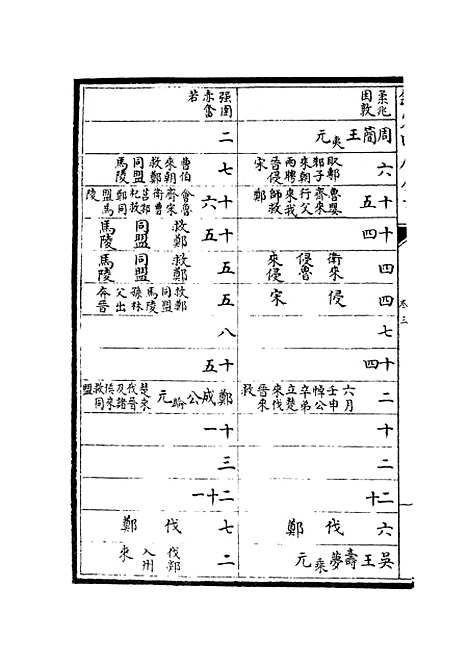 柔兆困敦
周簡王夷元
六 取鄟邾子來朝兩聘晉侵宋
十五 魯嬰齊來行父來我師救鄭
十四
四 衛來侵魯來侵
四 侵宋
七
十四
二 六月壬申悼公卒弟立楚來伐晉來救
十
二
二十
六 伐鄭
吳王壽夢乘元
卷三
強圉赤奮若
二
七 曹伯來朝救鄭同盟馬陵
十六 會魯齊宋衛曹莒邾杞救鄭同盟馬陵
十五 救鄭同盟馬陵
五 救鄭同盟馬陵
五 救鄭同盟馬陵孫林父出奔晉
八
十五
鄭成公睔元 楚來伐晉及諸侯來救同盟
十一
三
二十一
七 伐鄭
二 伐郯入州來